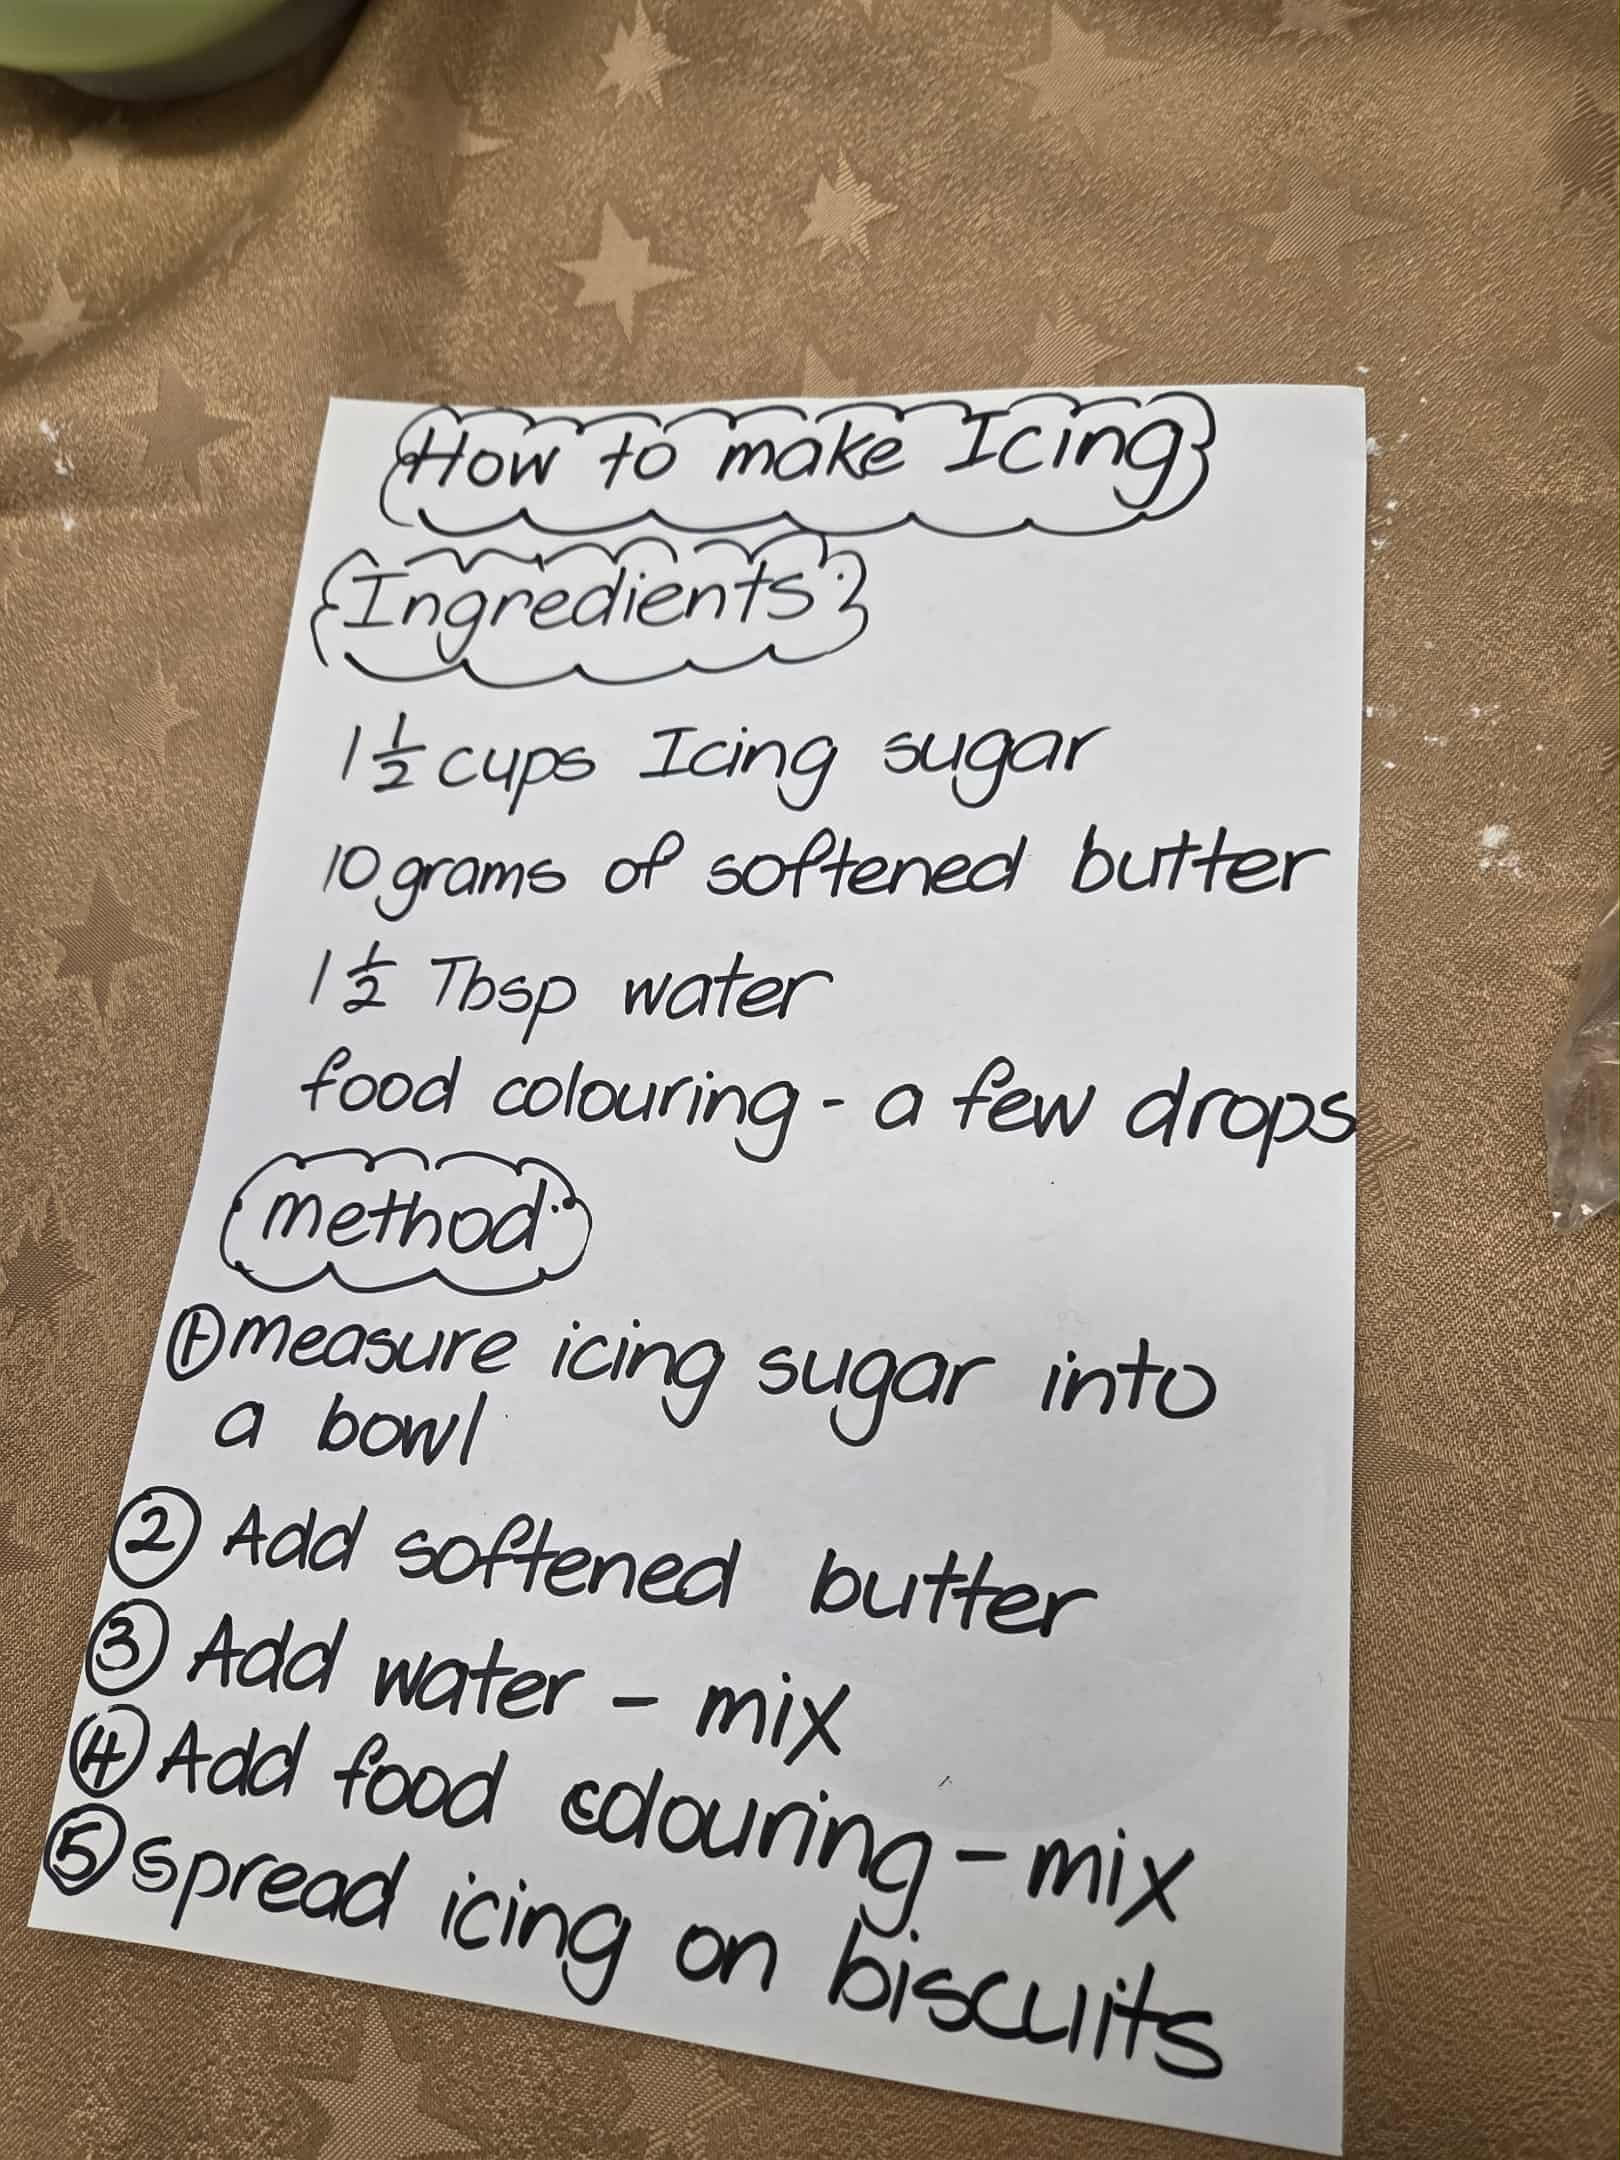 How to make Icing
Ingredients:
1 1/2 cups Icing sugar
10 grams of softened butter
1 1/2 Tbsp water
food colouring - a few drops
method:
1 measure icing sugar into
a bowl
2 Add softened butter
3 Add water - mix
4 Add food colouring - mix
5 spread icing on biscuits